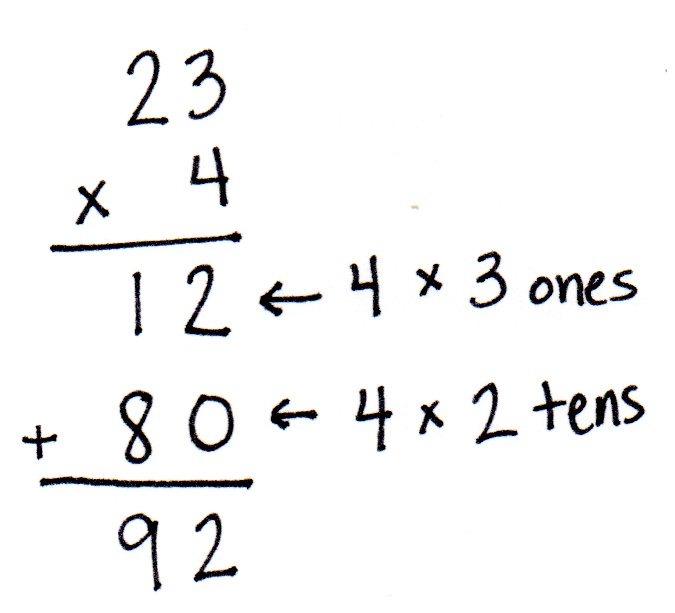 23
x 4
12 ← 4 x 3 ones
+ 80 ← 4 x 2 tens
92